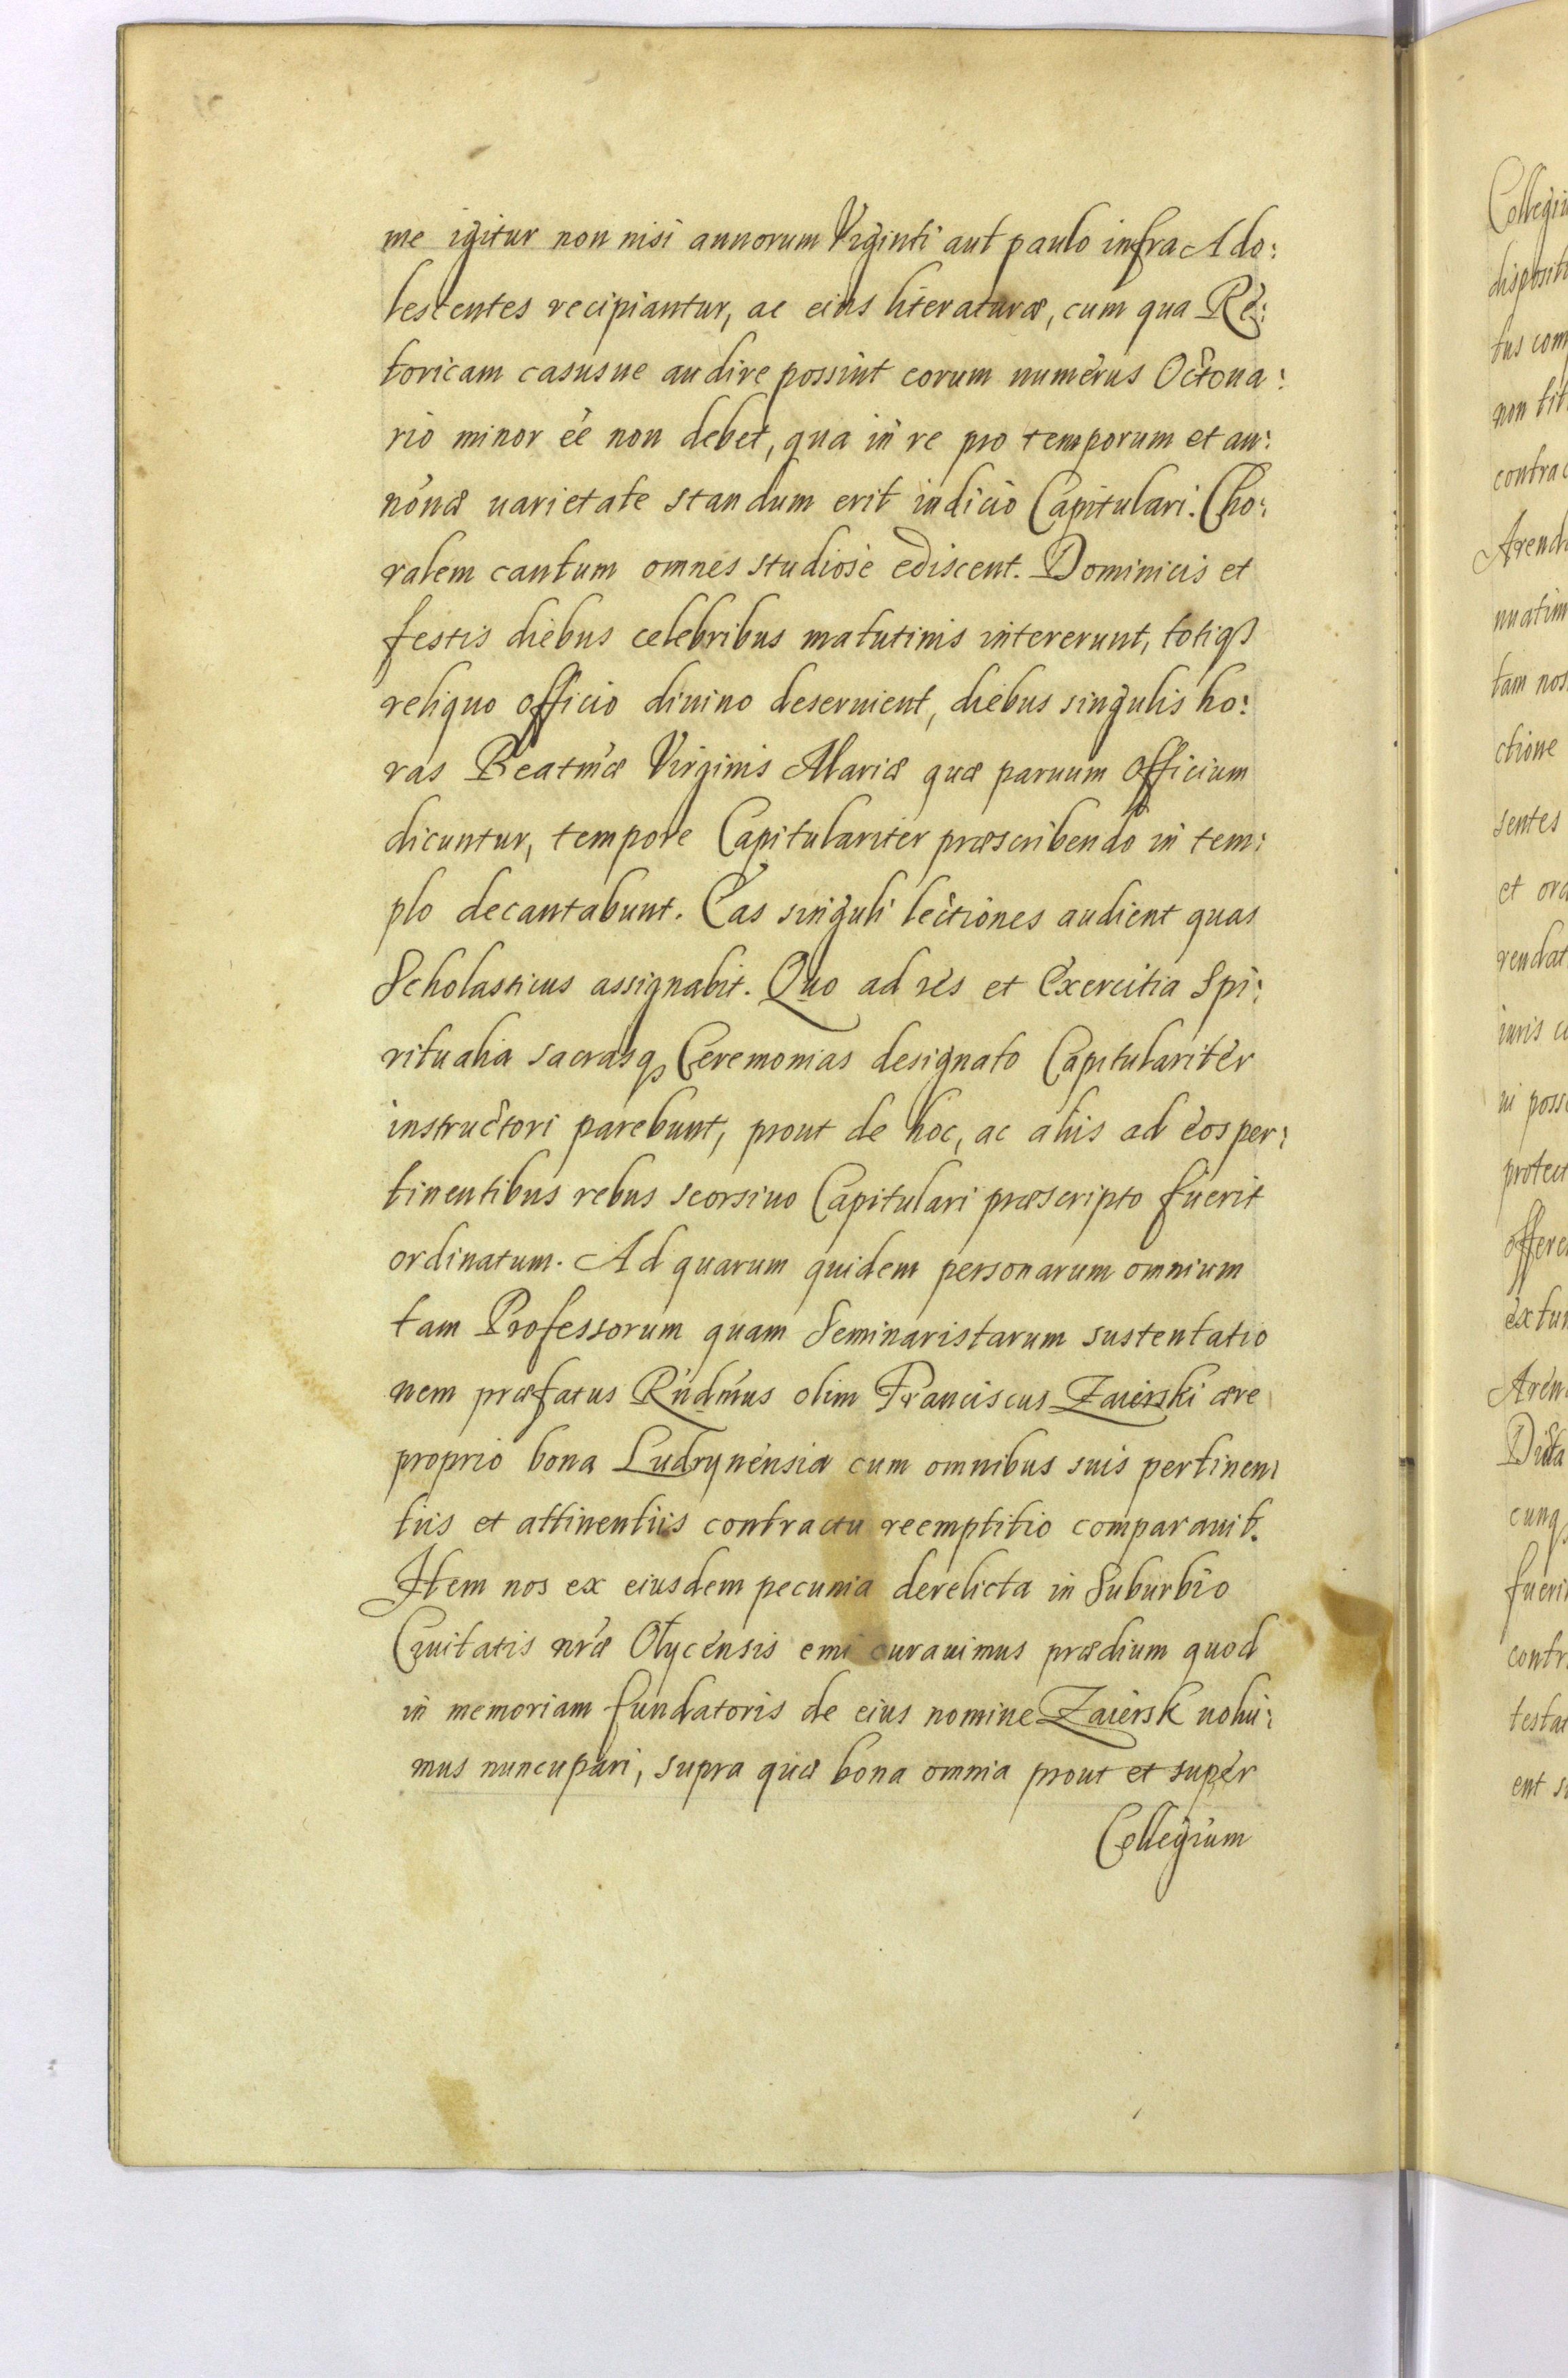 me igitur non nisi annorum Viginti aut paulo infra Ado:
lescentes recipiantur, ac eius literaturæ, cum qua Re:
toricam casusue audire possint eorum numerus Octona:
rio minor ée non debet, qua in re pro temporum et an:
nonæ uarietate standum erit iudicio Capitulari. Cho:
ralem cantum omnes studiose ediscent. Dominicis et
festis diebus celebribus matutinis intererunt, totiqз
reliquo officio diuino deseruient, diebus singulis ho:
ras Beatmæ Virginis Mariæ quæ paruum officium
dicuntur, tempore Capitulariter præscribendo in tem:
plo decantabunt. Eas singuli lectiones audient quas
Scholasticus assignabit. Quo ad res et Exercitia Spi:
ritualia sacrasqз Ceremonias designato Capitulariter
instructori parebunt, prout de hoc, ac aliis ad eos per:
tinentibus rebus seorsiuo Capitulari præscripto fuerit
ordinatum. Ad quarum quidem personarum omnium
tam Professorum quam Seminaristarum sustentatio
nem præfatus Rndmus olim Franciscus Zaierski ære
proprio bona Ludrynensia cum omnibus suis pertinen:
tiis et attinentiis contractu reemptitio comparauit.
Item nos ex eiusdem pecunia derelicta in Suburbio
Ciuitatis nræ Olycensis emi curauimus prædium quod
in memoriam fundatoris de eius nomine Zaiersk uolui:
mus nuncupari, supra quæ bona omnia prout et super
Collegium
Collegiu
disposit
tus com
non tit
contrac
Arend
nuatim
tam nos
ctione
sentes
et ora
rendat
iuris
ui poss
protect
offere
extun
Aren
Dicta
cunqз
fueri
contr
testat
ent s